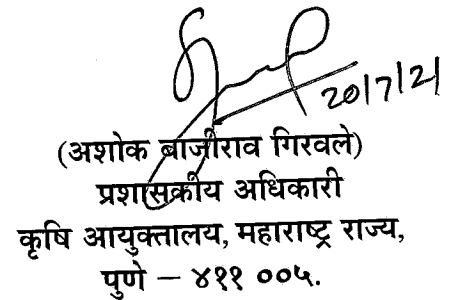 20/7/21
(अशोक बाजीराव गिरवले)
प्रशासकीय अधिकारी
कृषि आयुक्तालय, महाराष्ट्र राज्य,
पुणे – ४११ ००५.